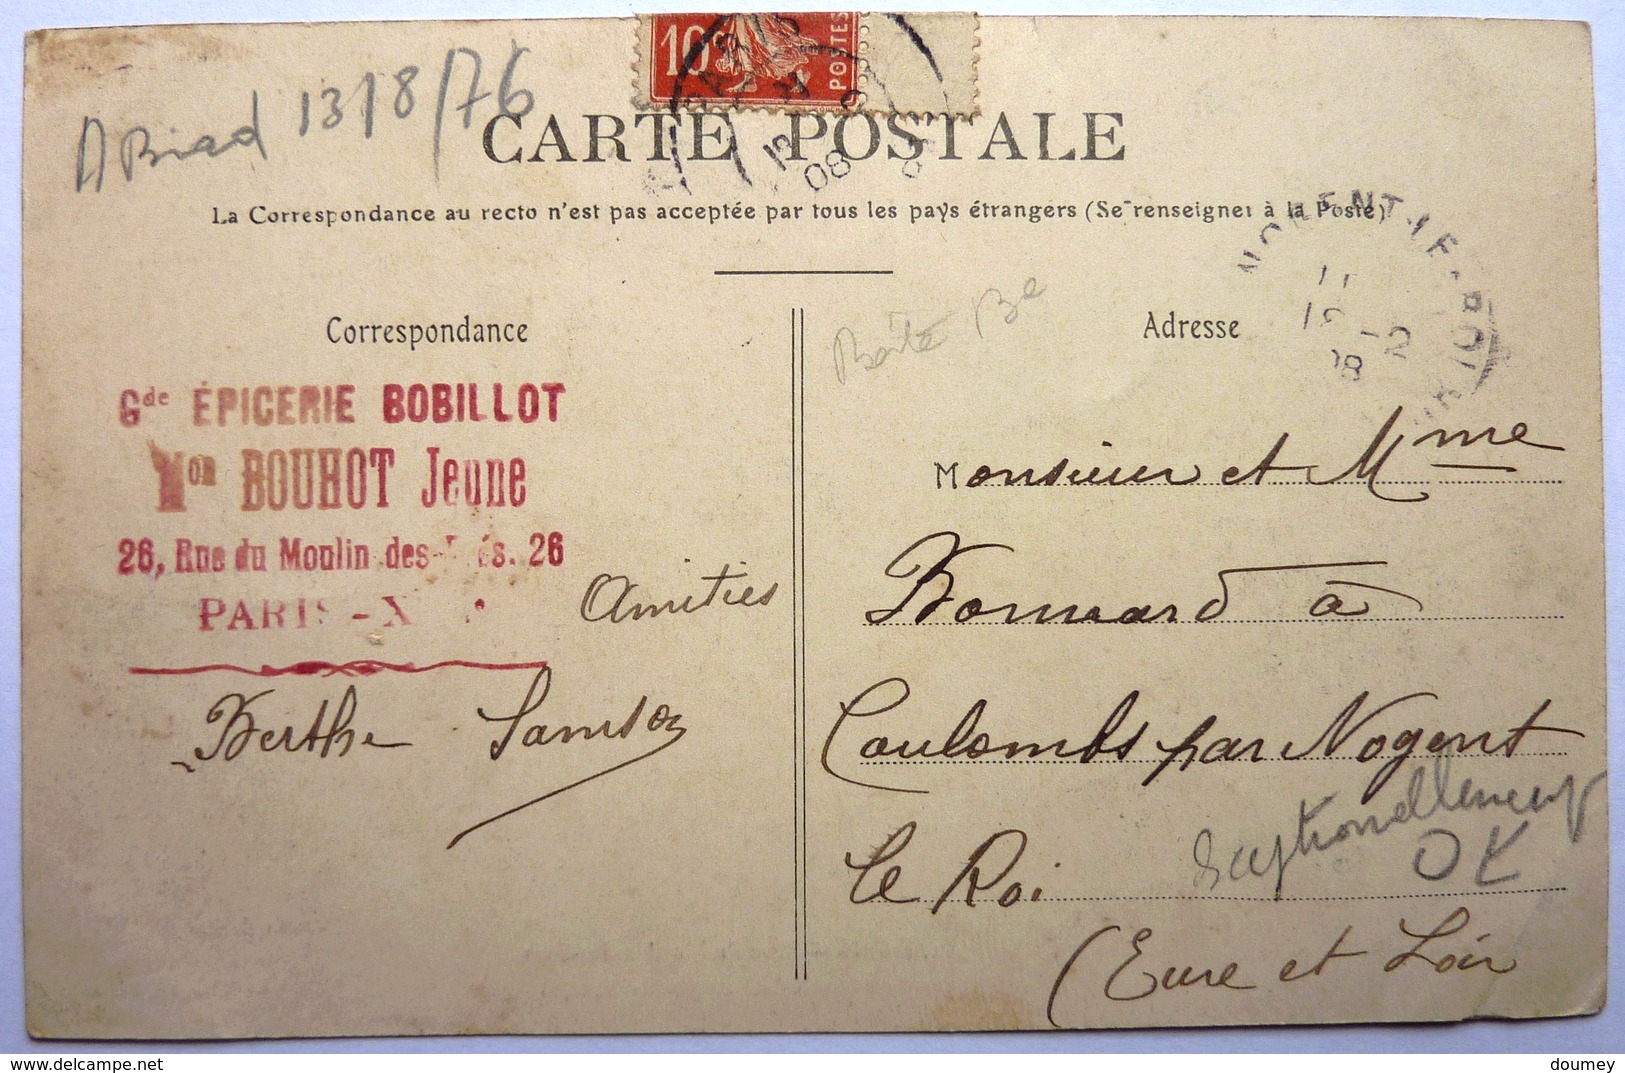 10c
POSTES
PARIS
08
A Briad 1318/76
CARTE POSTALE
La Correspondance au recto n'est pas acceptée par tous les pays étrangers (Se renseigner à la Poste)
NOGENT-LE-ROI
Correspondance
Adresse
Gde ÉPICERIE BOBILLOT
Mon BOUHOT Jeune
26, Rue du Moulin des-Prés. 26
PARIS-X
Amitiés
Berthe Samson
Monsieur et Mme
Bonnard à
Coulombs par Nogent
le Roi
OK
(Eure et Loir
doumey